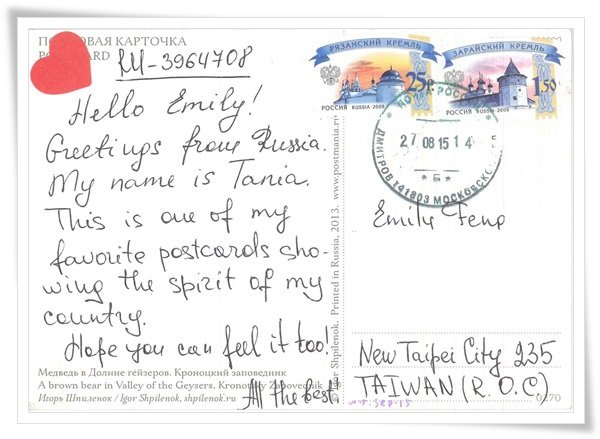 ПОЧТОВАЯ КАРТОЧКА
RU-3964708
Hello Emily!
Greetings from Russia.
My name is Tania.
This is one of my
favorite postcards sho-
wing the spirit of my
country.
Hope you can feel it too!
All the best!
Медведь в Долине гейзеров. Кроноцкий заповедник
A brown bear in Valley of the Geysers. Kronotsky Zapovednik
Игорь Шпиленок / Igor Shpilenok, shpilenok.ru
© Igor Shpilenok. Printed in Russia, 2013. www.postmania.ru
РЯЗАНСКИЙ КРЕМЛЬ
25р
РОССИЯ RUSSIA · 2009
ЗАРАЙСКИЙ КРЕМЛЬ
1.50
РОССИЯ RUSSIA · 2009
ПОЧТА РОССИИ
27 08 15 14
ДМИТРОВ 141803 МОСКОВСК
Б
Emily Feng
New Taipei City 235
TAIWAN (R.O.C)
0270